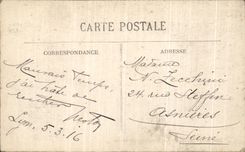 CARTE POSTALE
CORRESPONDANCE
ADRESSE
Mauvais temps,
j'ai hâte de
rentrer
Lyon, 5.3.16
Madame
N. Zecchini
24, rue Steffen
Asnières
Seine